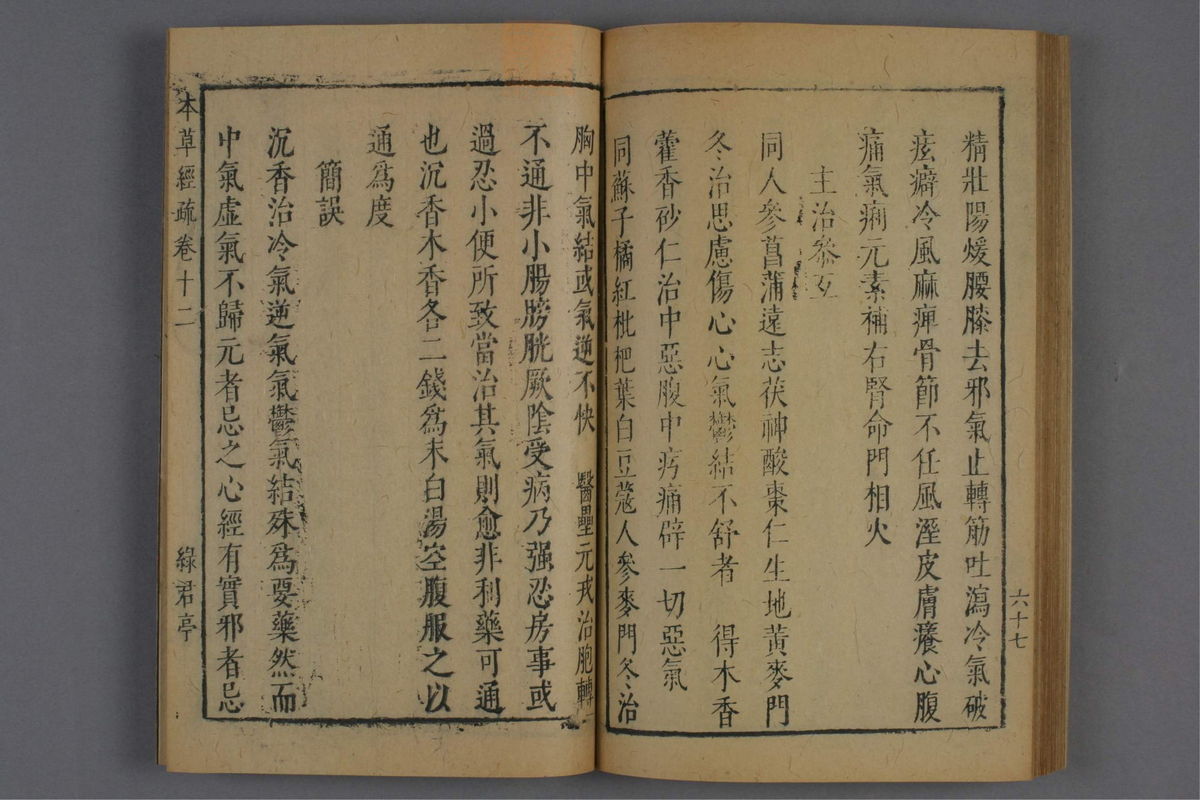 精壯陽煖腰膝去邪氣止轉筋吐瀉冷氣破
痃癖冷風麻痺骨節不任風溼皮膚癢心腹
痛氣痢元素補右腎命門相火
主治參互
同人參菖蒲遠志茯神酸棗仁生地黃麥門
冬治思慮傷心心氣鬱結不舒者　得木香
藿香砂仁治中惡腹中㽲痛辟一切惡氣
同蘇子橘紅枇杷葉白豆蔻人參麥門冬治
六十七
胸中氣結或氣逆不快　醫壘元戎治胞轉
不通非小腸膀胱厥陰受病乃强忍房事或
過忍小便所致當治其氣則愈非利藥可通
也沉香木香各二錢爲末白湯空腹服之以
通爲度
簡誤
沉香治冷氣逆氣氣鬱氣結殊爲要藥然而
中氣虛氣不歸元者忌之心經有實邪者忌
本草經疏卷十二
綠君亭